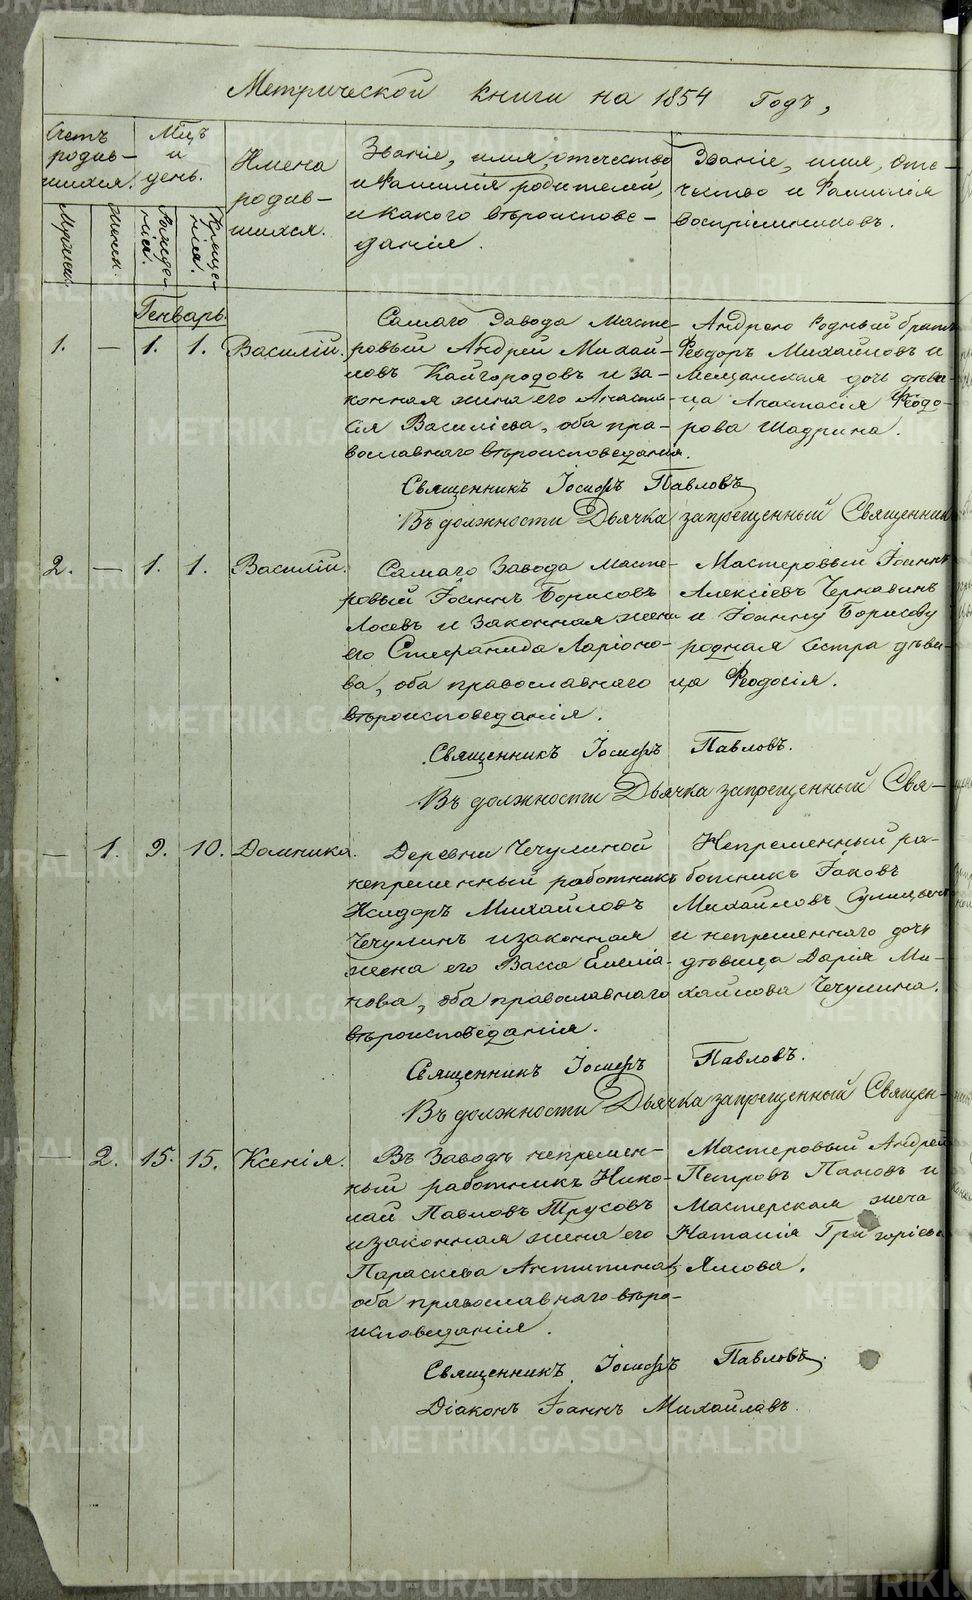 Метрической книги на 1854 Годъ,
Счетъ родив-шихся.
Мцъ и день.
Имена родив-шихся.
Званіе, имя, отечество и Фамилія родителей, и какого вѣроиспове-данія.
Званіе, имя, Оте-чество и Фамилія воспріемниковъ.
Мужеск.
Женск.
Рожде-нія.
Креще-нія.
Генварь.
1. — 1. 1. Василій.
Самаго Завода Масте-
ровый Андрей Михай-
ловъ Кайгородовъ и за-
конная жена его Анаста-
сія Василіева, оба пра-
вославнаго вѣроисповеданія.
Андрею Родный братъ
Ѳеодоръ Михайловъ и
Мещанская дочь дѣви-
ца Анастасія Ѳеодо-
рова Шадрина.
Священникъ Іосифъ Павловъ
Въ должности Дьячка запрещенный Священник
2. — 1. 1. Василій.
Самаго Завода Масте-
ровый Іоаннъ Борисовъ
Лосевъ и Законная жена
его Стефанида Ларіоно-
ва, оба православнаго
вѣроисповеданія.
Мастеровый Іоаннъ
Алексіевъ Чернавинъ
и Іоанну Борисову
родная Сестра дѣви-
ца Ѳеодосія.
Священникъ Іосифъ Павловъ.
Въ должности Дьячка запрещенный Свя-
— 1. 9. 10. Домника.
Деревни Чечулиной
непременный работникъ
Исидоръ Михайловъ
Чечулинъ и законная
жена его Васса Емеліа-
нова, оба православнаго
вѣроисповеданія.
Непременный ра-
ботникъ Іаковъ
Михайловъ
и непременнаго дочь
дѣвица Дарія Ми-
хайлова Чечулина.
Священникъ Іосифъ Павловъ.
Въ должности Дьячка запрещенный Священ-
— 2. 15. 15. Ксенія.
Въ Заводѣ непремен-
ный работникъ Нико-
лай Павловъ Трусовъ
и законная жена его
Параскева Антипина,
оба православнаго вѣро-
исповеданія.
Мастеровый Андрей
Петровъ Пановъ и
Мастерская жена
Наталія Григоріева
Ямова.
Священникъ Іосифъ Павловъ.
Діаконъ Іоаннъ Михайловъ
METRIKI.GASO-URAL.RU